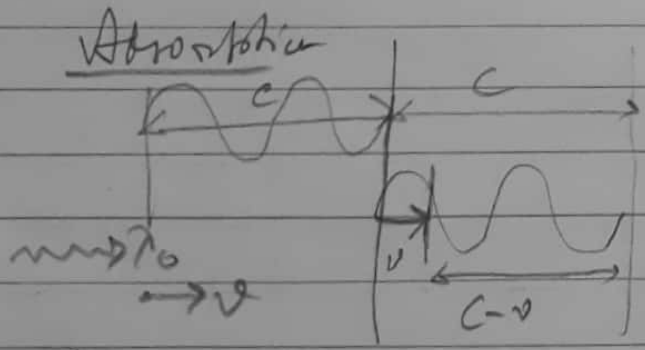 Absorption
C
C
λ₀
v
v
C-v